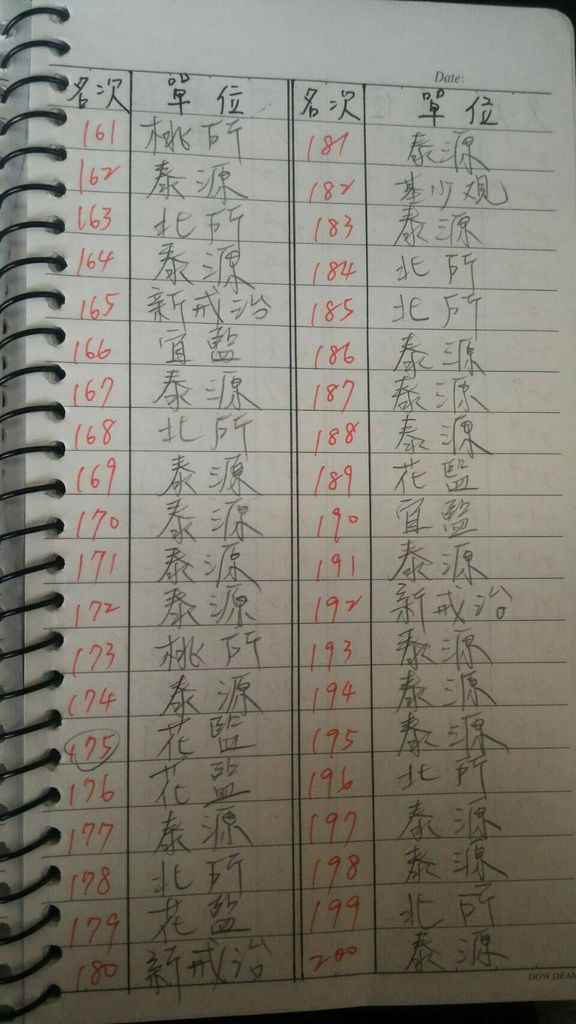 Date:
名次 單位 名次 單位
161 桃所 181 泰源
162 泰源 182 基少观
163 北所 183 泰源
164 泰源 184 北所
165 新戒治 185 北所
166 宜監 186 泰源
167 泰源 187 泰源
168 北所 188 泰源
169 泰源 189 花監
170 泰源 190 宜監
171 泰源 191 泰源
172 泰源 192 新戒治
173 桃所 193 泰源
174 泰源 194 泰源
175 花監 195 泰源
176 花監 196 北所
177 泰源 197 泰源
178 北所 198 泰源
179 花監 199 北所
180 新戒治 200 泰源